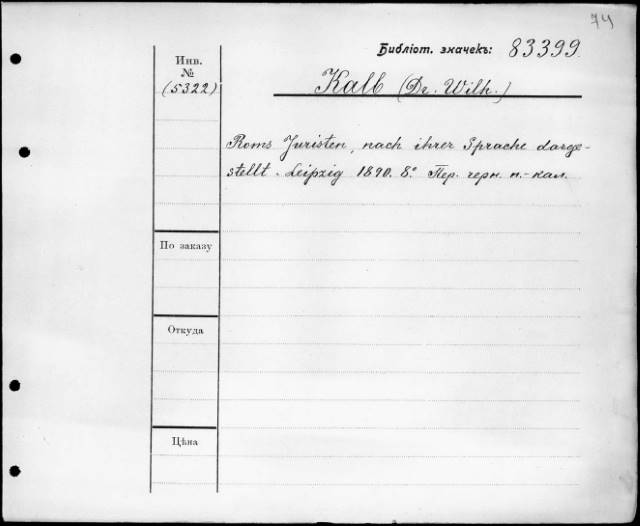 74
Библіот. значекъ: 83399
Инв.
№
(5322)
Kalb (Dr. Wilh.)
Roms Juristen, nach ihrer Sprache darge-
stellt. Leipzig 1890. 8.° Пер. черн. п.-кал.
По заказу
Откуда
Цѣна